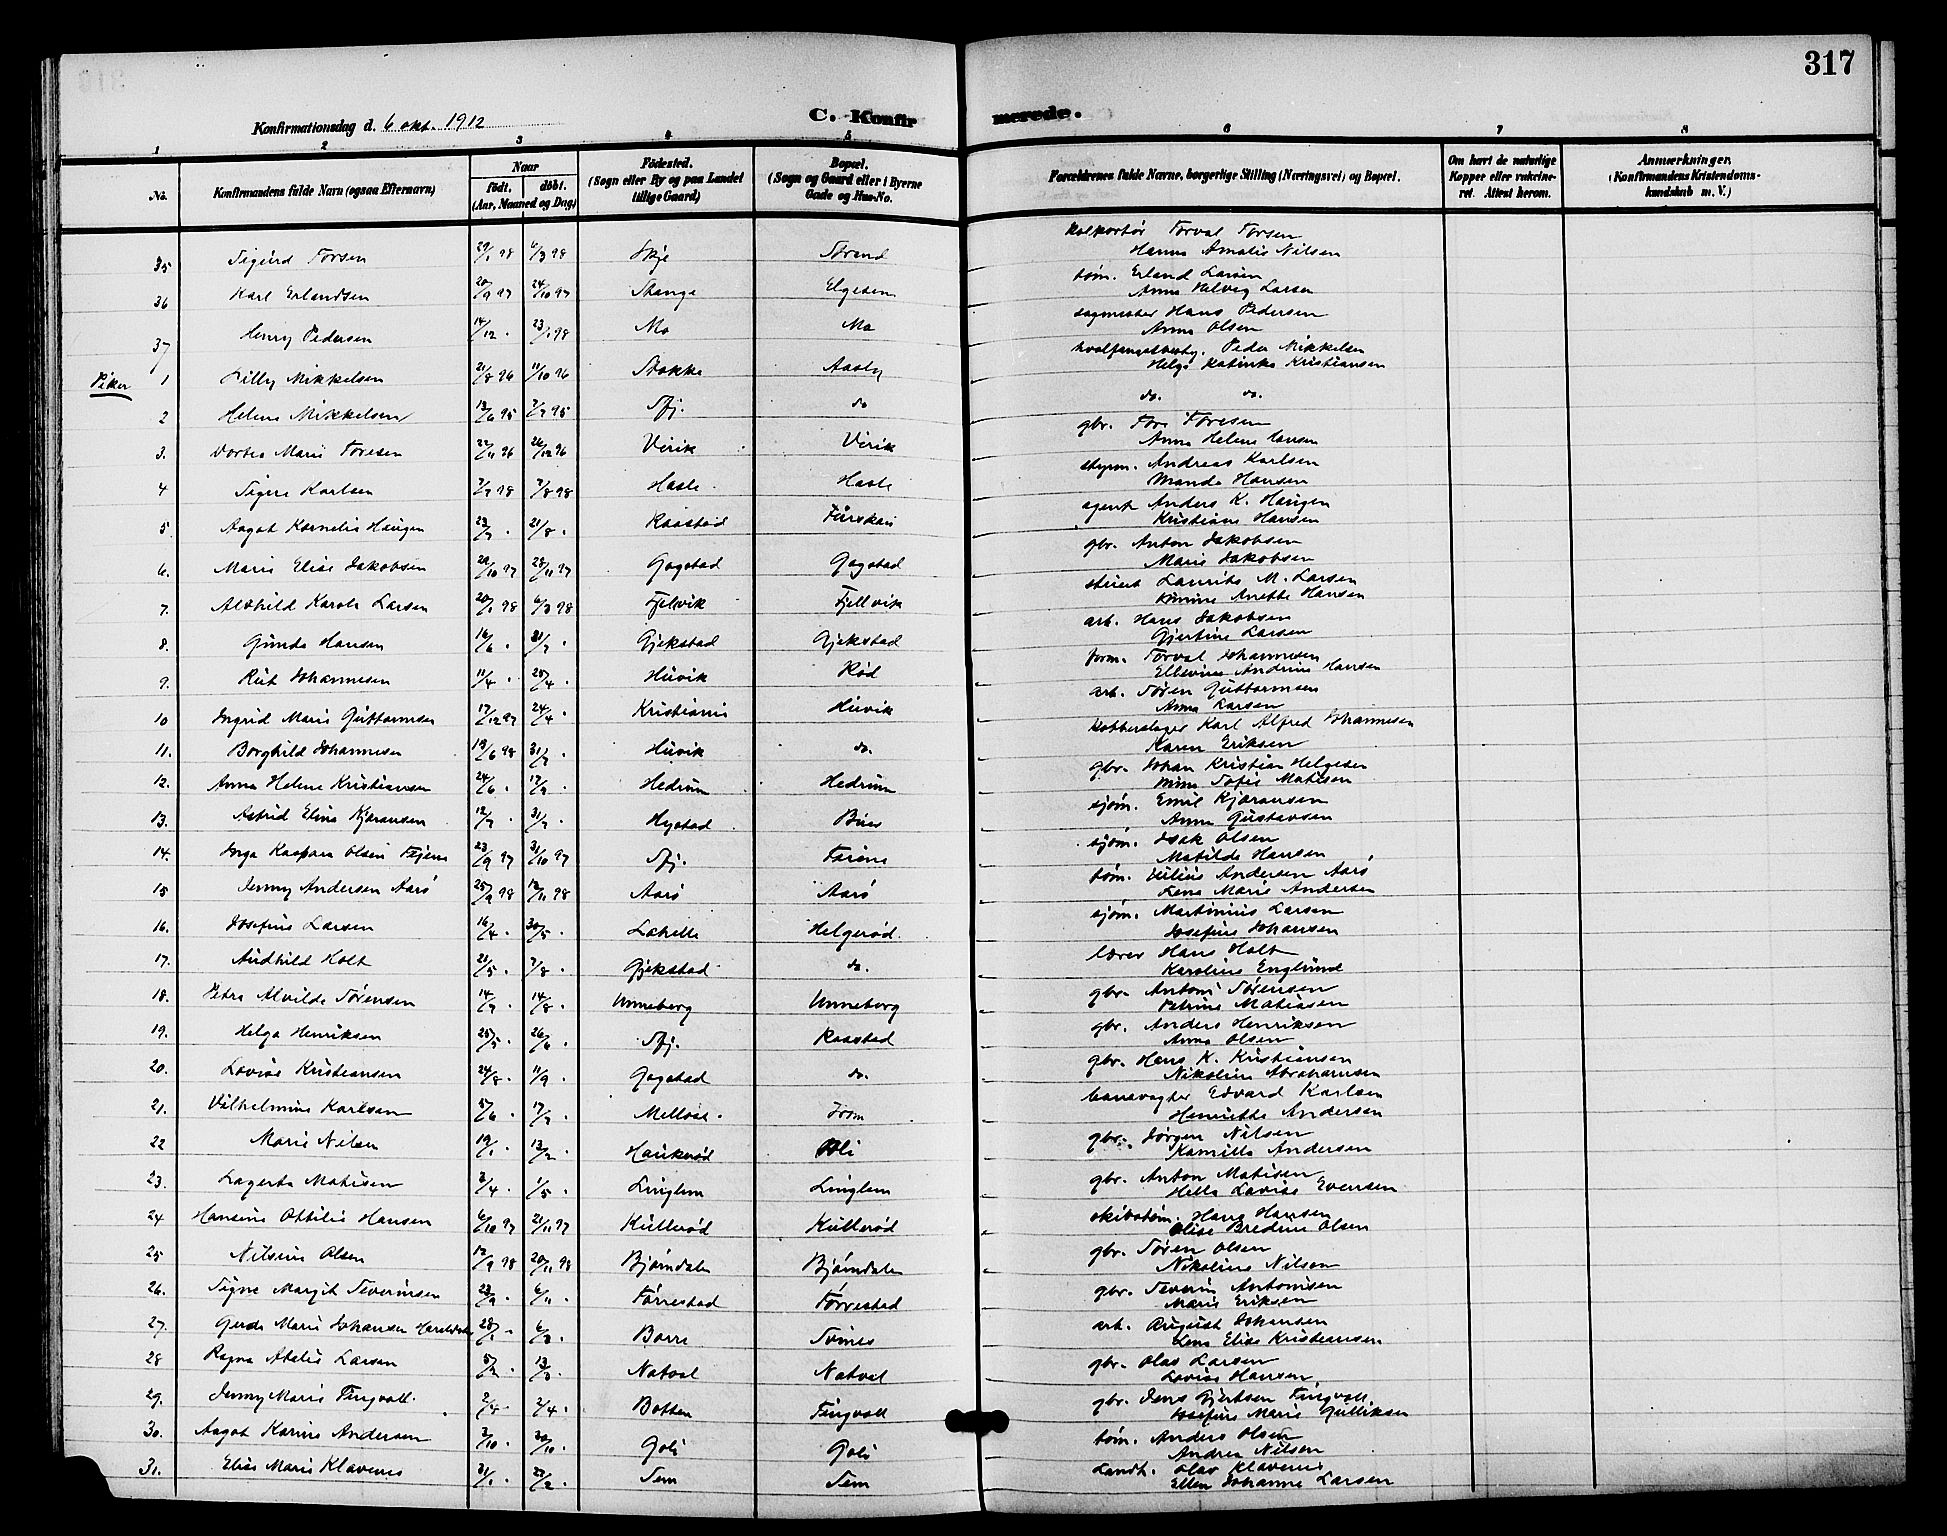 317
Konfirmationsdag d. 6 okt. 1912
C. Konfirmerede.
1 2 3 4 5 6 7 8
No. Konfirmandens fulde Navn (ogsaa Efternavn) Naar født. døbt. (Aar, Maaned og Dag) Fødested. (Sogn eller By og paa Landet tillige Gaard) Bopæl. (Sogn og Gaard eller i Byerne Gade og Hus-No. Forældrenes fulde Navne, borgerlige Stilling (Næringsvei) og Bopæl. Om havt de naturlige Kopper eller vakcineret. Attest herom. Anmærkninger. (Konfirmandens Kristendomskundskab m. V.)
35 Sigurd Torsen 29/1 98 6/3 98 Skje Strand kolportør Torval Torsen
Hanna Amalie Nilsen
36 Karl Erlandsen 20/9 97 24/10 97 Stange Elgesem tøm. Erland Larsen
Anna Helvig Larsen
37 Henry Pedersen 14/12 . 23/1 98 Mo Mo sagmester Hans Pedersen
Anna Olsen
Piker
1 Lilly Mikkelsen 21/8 96 11/10 96 Stokke Aasly hvalfangstbesty. Peder Mikkelsen
Helga Katinka Kristiansen
2 Helene Mikkelsen 13/6 95 7/7 95 Sfj. do do. do.
3. Dortea Marie Toresen 22/11 96 26/12 96 Virik Virik gbr. Tore Toresen
Anna Helene Hansen
4 Signe Karlsen 7/7 98 7/8 98 Hasle Hasle styrm. Andreas Karlsen
Wanda Hansen
5 Aagot Kornelia Haugen 23/7 . 21/8 . Raastad agent Anders K. Haugen
Kristiane Hansen
6. Marie Elise Jakobsen 20/10 97 28/11 97 Gogstad Gogstad gbr. Anton Jakobsen
Marie Jakobsen
7. Alvhild Karola Larsen 20/1 98 6/3 98 Fjelvik Fjellvik stuert Laurits M. Larsen
Anette Hansen
8. Gunda Hansen 16/6 . 31/7 . Gjekstad Gjekstad arb. Hans Jakobsen
Gjertine Larsen
9. Rut Johannesen 11/4 . 25/4 . Huvik Rød form. Torval Johannesen
Ellevine Andrine Hansen
10 Ingrid Marie Guttormsen 17/12 97 24/4 . Kristiania Huvik arb. Søren Guttormsen
Anna Larsen
11. Borghild Johannesen 18/6 98 31/7 . Huvik do. Kobberslager Karl Alfred Johannesen
Karen Eriksen
12. Anna Helene Kristiansen 24/6 . 17/7 . Hedrum Hedrum gbr. Johan Kristian Helgesen
Mina Sofie Matisen
13. Astrid Elina Kjøransen 12/7 . 31/7 . Hystad Bue sjøm. Emil Kjøransen
Anna Gustavsen
14. Inga Kaspara Olsen 23/9 97 31/10 97 Sfj. sjøm. Isak Olsen
Matilde Hansen
15 Jenny Andersen Aarø 25/9 98 12/11 98 Aarø Aarø tøm. Julius Andersen Aarø
Lena Marie Andersen
16. Josefine Larsen 16/4 . 30/5 . Lahelle Helgerød. sjøm. Martinius Larsen
Josefine Johansen
17. Audhild Holt 21/5 . 7/8 . Gjekstad do. lærer Hans Holt
Karoline Englund
18. Petra Alvilde Sørensen 14/7 . 14/8 . Unneberg Unneberg gbr. Anton Sørensen
Petrine Matiasen
19. Helga Henriksen 25/5 . 26/6 . Sfj. Raastad gbr. Anders Henriksen
Anna Olsen
20. Lovise Kristiansen 24/8 . 11/9 . Gogstad do. gbr. Hans K. Kristiansen
Nikoline Abrahamsen
21. Vilhelmine Karlsen 5/6 . 17/7 . Mellom. banevogter Edvard Karlsen
Henriette Andersen
22 Marie Nilsen 19/1 . 13/2 . Haukerød Bli gbr. Jørgen Nilsen
Kamilla Andersen
23. Lagerta Matisen 3/4 . 1/5 . Linglem Linglem gbr. Anton Matisen
Hella Lovise Evensen
24 Hansine Ottilie Hansen 6/10 97 21/11 97 Kullerød Kullerød skibstøm. Hans Hansen
Elise Bredine Olsen
25 Nilsine Olsen 12/9 98 20/11 98 Bjørndalen Bjørndalen gbr. Søren Olsen
Nikoline Nilsen
26. Signe Margit Severinsen 23/9 . 6/11 . Tørrestad Tørrestad gbr. Severin Antonisen
Marie Eriksen
27. Gerda Marie Johansen 28/1 . 6/3 . Borre arb. August Johansen
Lena Elise Kristiansen
28 Ragna Atalie Larsen 5/2 . 13/3 . Natvel Natvel gbr. Olav Larsen
Lovise Hansen
29. Jenny Marie Tingvoll. 2/4 . Botten Tingvoll gbr. Jens Gjertsen Tingvoll
Josefine Marie Gulliksen
30. Aagot Karine Andersen 3/10 . 30/10 . Goli Goli tøm. Anders Olsen
Andrea Nilsen
31. Elise Marie Klavenes 31/1 . 27/2 . Sem Sem Landh. Olav Klavenes
Ellen Johanne Larsen